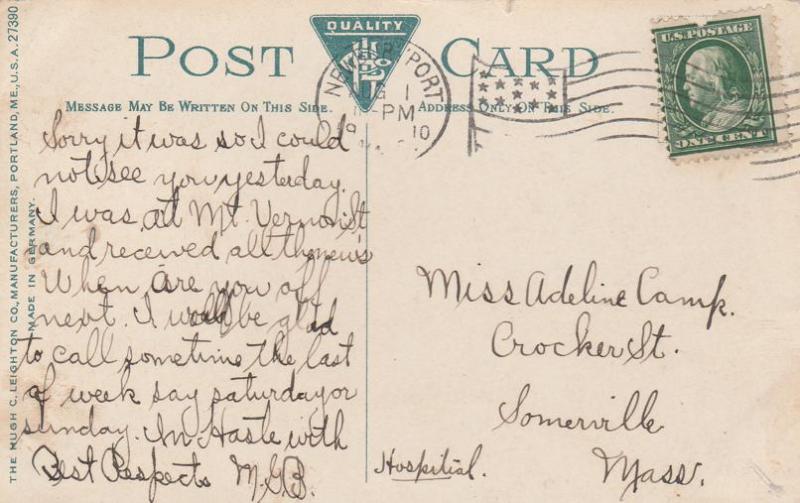 THE HUGH C. LEIGHTON CO., MANUFACTURERS, PORTLAND, ME., U.S.A. 27390
MADE IN GERMANY.
POST CARD
QUALITY
MESSAGE MAY BE WRITTEN ON THIS SIDE.
ADDRESS ONLY ON THIS SIDE.
U.S. POSTAGE
ONE CENT
1
PM
10
Sorry it was so I could
not see you yesterday.
I was at Mt. Vernon St
and received all the news
When are you off
next. I would be glad
to call sometime the last
of week say saturday or
sunday. In Haste with
Best Respects M.G.B.
Miss Adeline Camp.
Crocker St.
Somerville
Hospitial.
Mass.